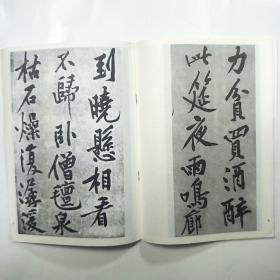 力貧買酒醉
此筵夜雨鳴廊
到曉懸相看
不歸臥僧氈泉
枯石燥復潺湲